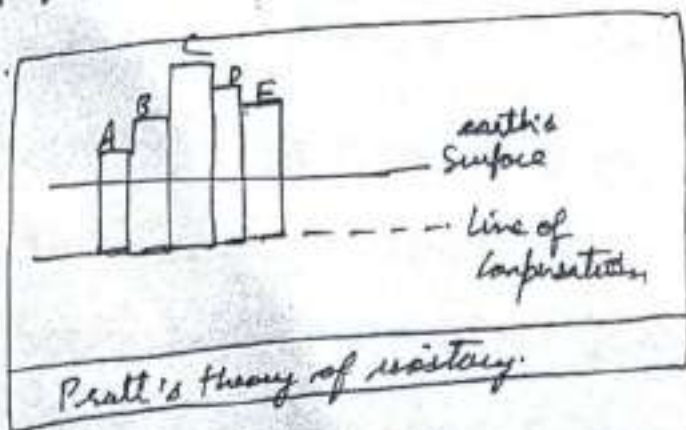 C
B
D
A
E
earth's
Surface
Line of
Compensation
Pratt's theory of isostacy.